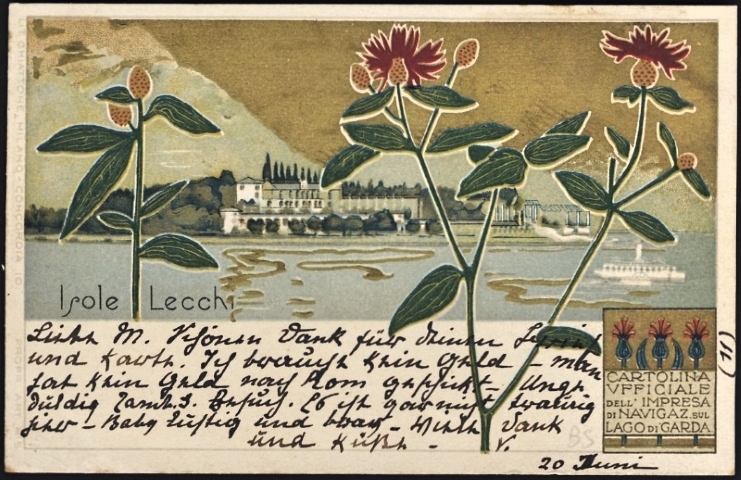 Isole Lecchi
Liebe M. Schönen Dank für deinen
und Karte. Ich brauch kein Geld – man
hat kein Geld nach Rom geschickt –
Es ist gar nicht traurig
hier – Baby lustig und brav – Dank
und Küsse – V.
20 Juni
(11)
BS
CARTOLINA
VFFICIALE
DELL' IMPRESA
DI NAVIGAZ. SUL
LAGO DI GARDA